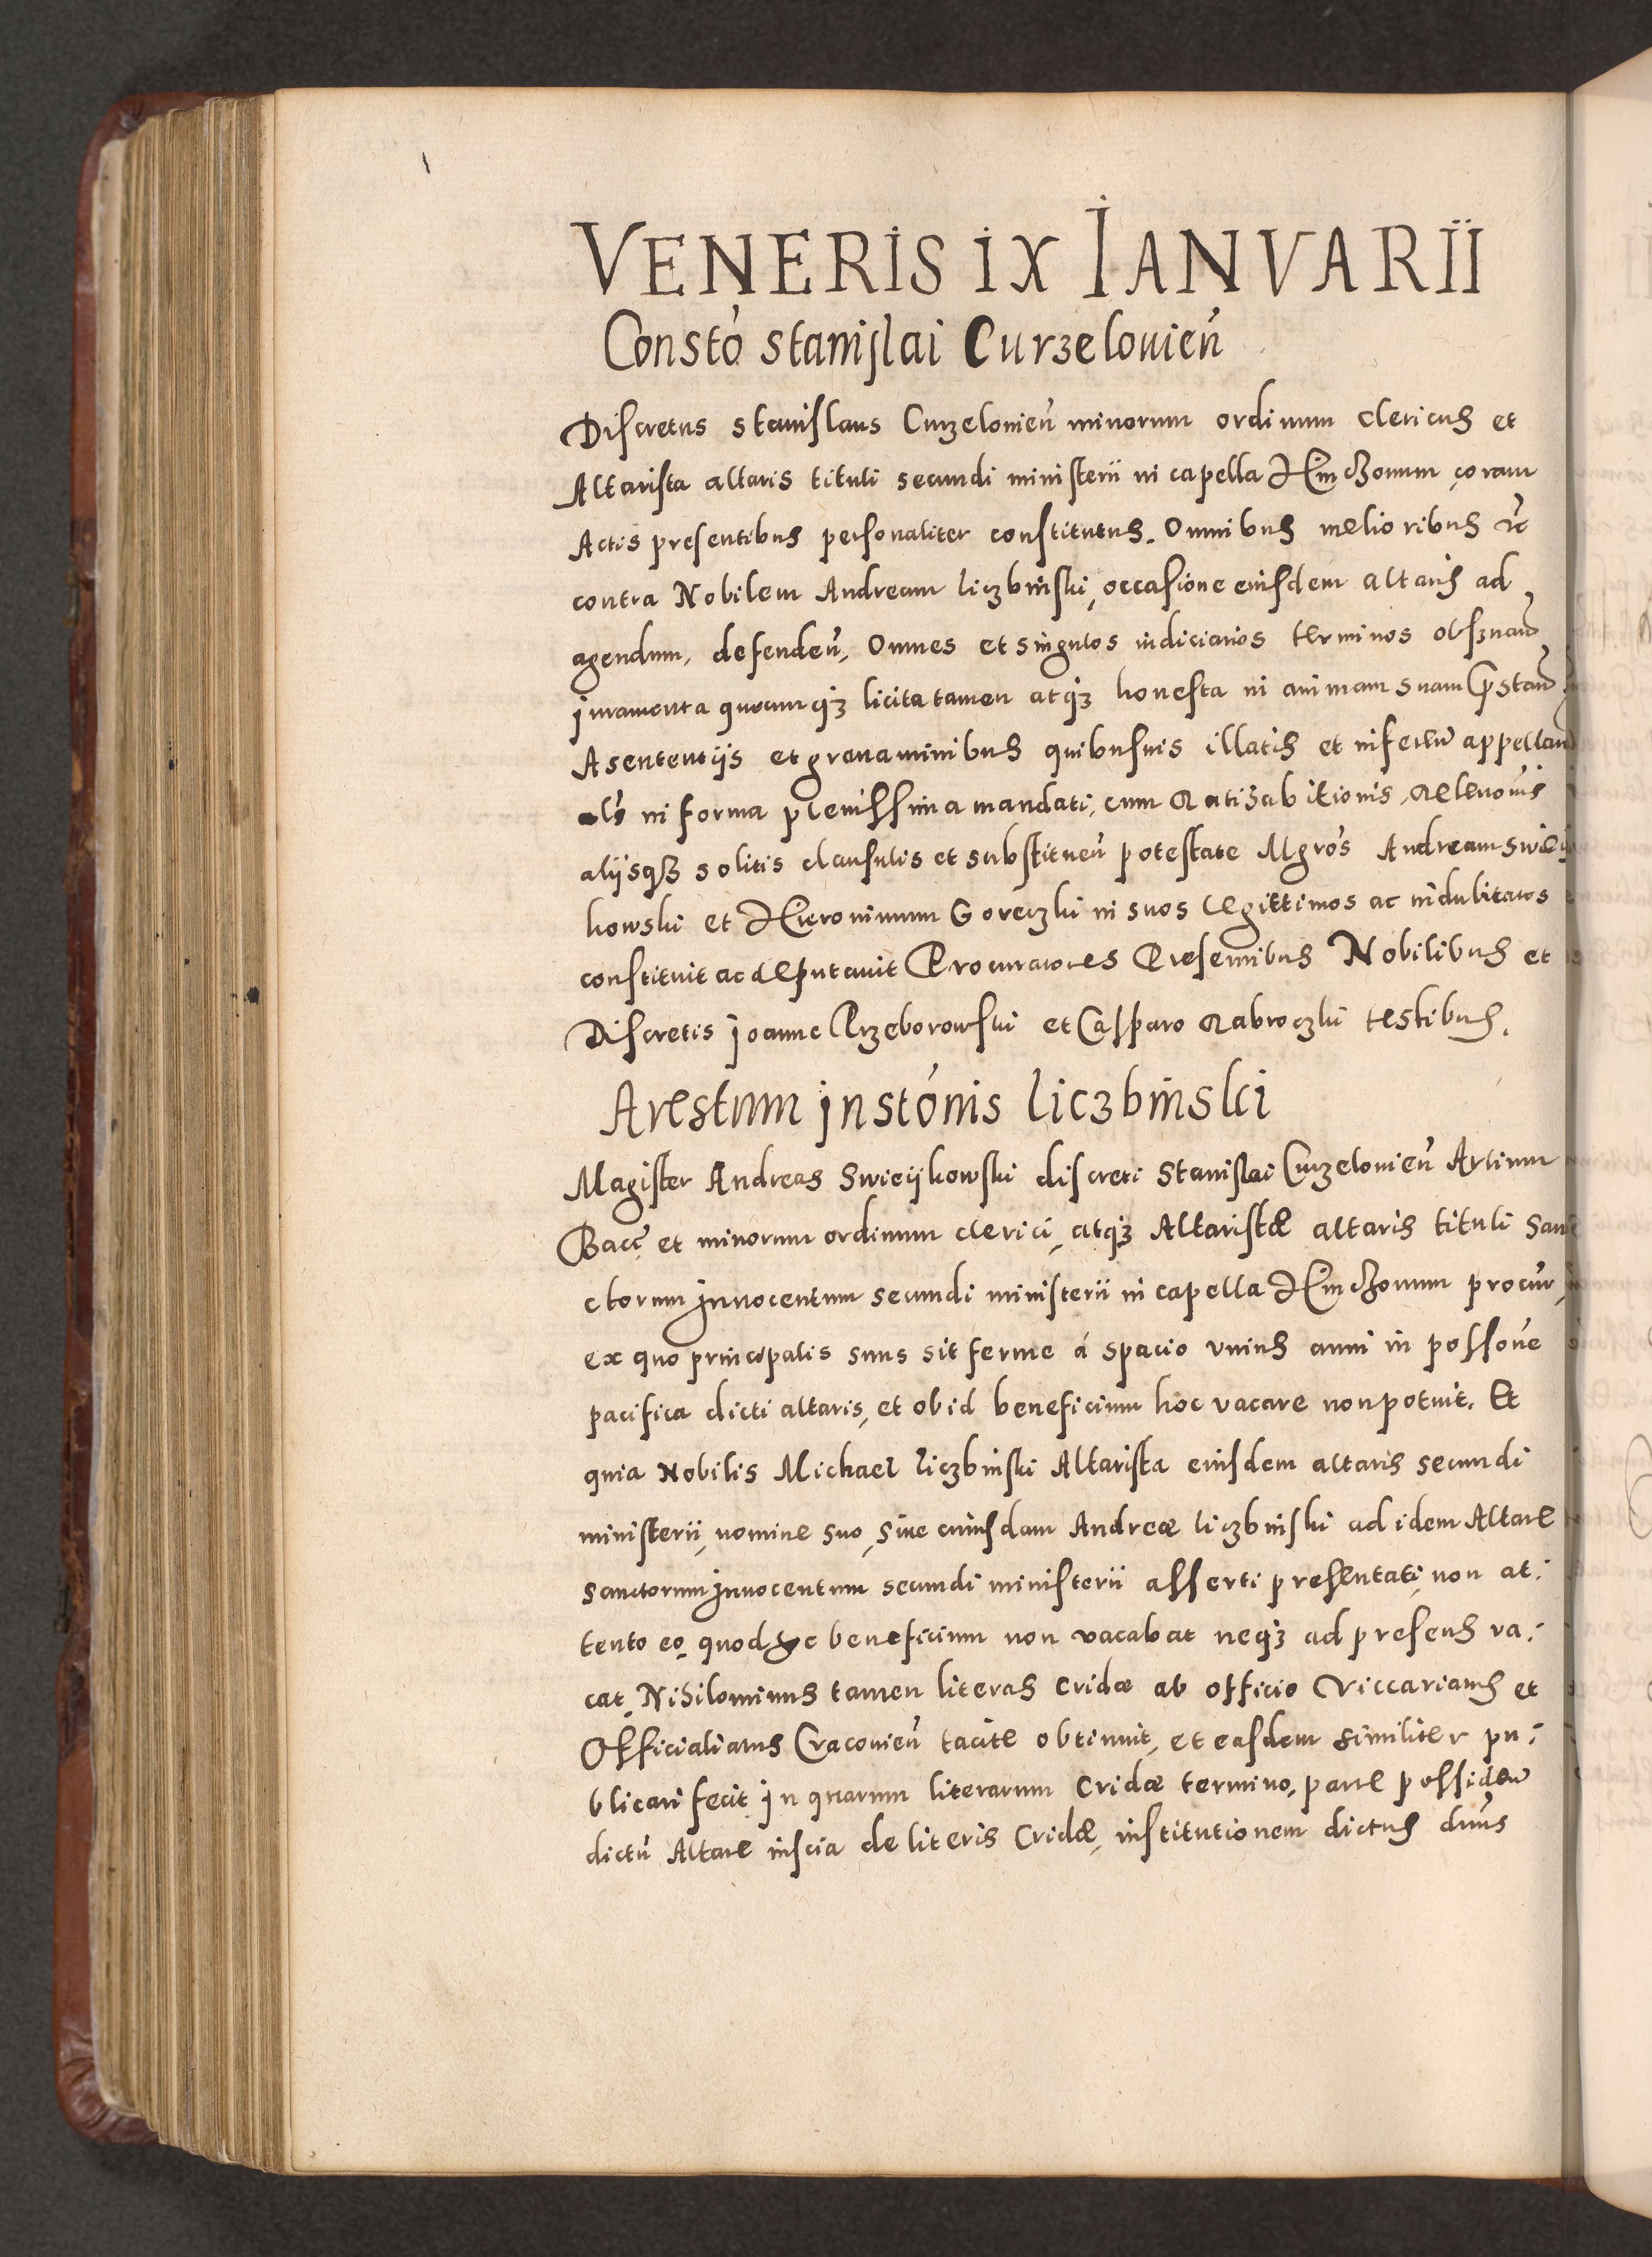 VENERIS IX IANVARII
Constò Stanislai Curzelouień
Discretus Stanislaus Curzelouień minorum ordinum clericus et
Altarista altaris tituli secundi ministerii in capella Hinczonum, coram
Actis presentibus personaliter constitutus. Omnibus melioribus etc̃
contra Nobilem Andream liczbinski, occasione eiusdem altaris ad
agendum, defendeń, Omnes et singulos iudiciarios terminos obseruań
iuramenta quecumq3 licita tamen atq3 honesta in animam suam prestań
A sententijs et grauaminibus quibusuis illatis et inferen̄ appellan̄
als̄ in forma plenissima mandati, cum ratihabitionis, releuōnis
alijsq3 solitis clausulis et substitueń potestate Mgrōs Andream Swieij
kowski et Hieronimum Goreczki in suos legittimos ac indubitatos
constituit ac deputauit Procuratores Presentibus Nobilibus et
Discretis Joanne Przeborowski et Casparo Rabroczki testibus.
Arestum instōnis liczbinski
Magister Andreas Swieijkowski discreti Stanislai Curzelouień Artium
Bacc̄ et minorum ordinum clerici, atq3 Altaristæ altaris tituli San
ctorum Innocentum secundi ministerii in capella Hinczonum procur̄,
ex quo principalis suus sit ferme á spacio vnius anni in possōne
pacifica dicti altaris, et ob id beneficium hoc vacare non potuit. Et
quia Nobilis Michael liczbinski Altarista eiusdem altaris secundi
ministerii, nomine suo, siue cuiusdam Andreæ liczbinski ad idem Altare
sanctorum Innocentum secundi ministerii asserti presentati, non at:
tento eo quod hoc beneficium non vacabat neq3 ad presens va:
cat, Nihilominus tamen literas cridæ ab officio Viccariatus et
Officialiatus Cracouień tacite obtinuit, et easdem similiter pu:
blicari fecit In quarum literarum cridæ termino, parte possiden̄
dictū Altare inscia de literis Cridæ, institutionem dictus dn̄us